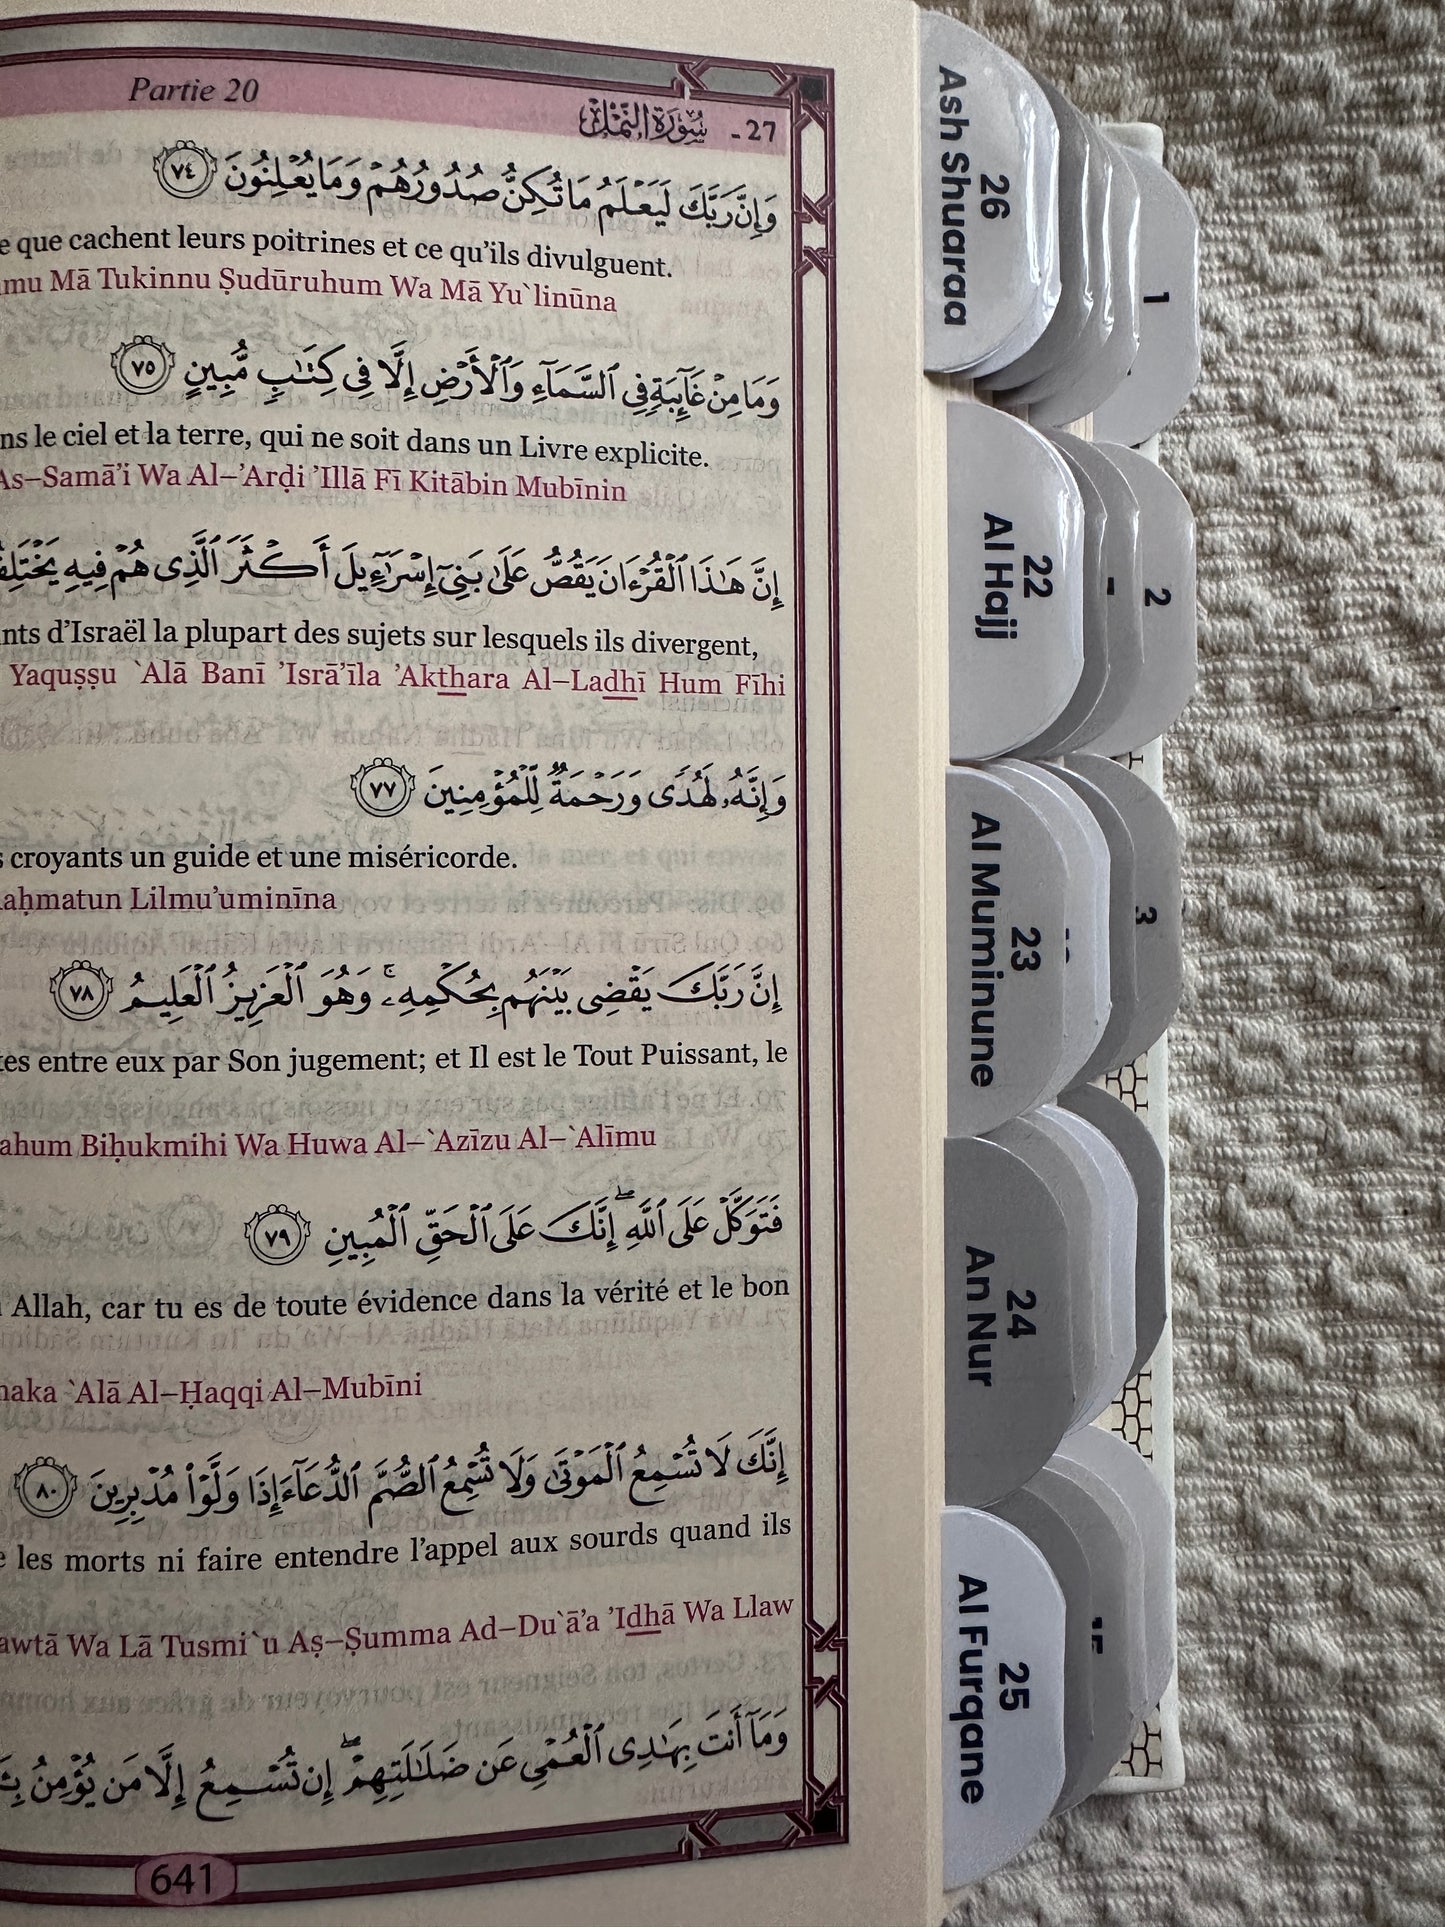 Partie 20
سُورَةُ النَّمْل - 27
وَإِنَّ رَبَّكَ لَيَعْلَمُ مَا تُكِنُّ صُدُورُهُمْ وَمَا يُعْلِنُونَ ٧٤
que cachent leurs poitrines et ce qu’ils divulguent.
Mā Tukinnu Ṣudūruhum Wa Mā Yu`linūna
وَمَا مِنْ غَآئِبَةٍ فِى ٱلسَّمَآءِ وَٱلْأَرْضِ إِلَّا فِى كِتَٰبٍ مُّبِينٍ ٧٥
le ciel et la terre, qui ne soit dans un Livre explicite.
As–Samā’i Wa Al–’Arḍi ’Illā Fī Kitābin Mubīnin
إِنَّ هَٰذَا ٱلْقُرْءَانَ يَقُصُّ عَلَىٰ بَنِىٓ إِسْرَٰٓءِيلَ أَكْثَرَ ٱلَّذِى هُمْ فِيهِ
d’Israël la plupart des sujets sur lesquels ils divergent,
Yaquṣṣu `Alā Banī ’Isrā’īla ’Akthara Al–Ladhī Hum Fīhi
وَإِنَّهُۥ لَهُدًى وَرَحْمَةٌ لِّلْمُؤْمِنِينَ ٧٧
croyants un guide et une miséricorde.
Lilmu’uminīna
إِنَّ رَبَّكَ يَقْضِى بَيْنَهُم بِحُكْمِهِۦ ۚ وَهُوَ ٱلْعَزِيزُ ٱلْعَلِيمُ ٧٨
entre eux par Son jugement; et Il est le Tout Puissant, le
Biḥukmihi Wa Huwa Al–`Azīzu Al–`Alīmu
فَتَوَكَّلْ عَلَى ٱللَّهِ ۖ إِنَّكَ عَلَى ٱلْحَقِّ ٱلْمُبِينِ ٧٩
Allah, car tu es de toute évidence dans la vérité et le bon
`Alā Al–Ḥaqqi Al–Mubīni
إِنَّكَ لَا تُسْمِعُ ٱلْمَوْتَىٰ وَلَا تُسْمِعُ ٱلصُّمَّ ٱلدُّعَآءَ إِذَا وَلَّوْا۟ مُدْبِرِينَ ٨٠
les morts ni faire entendre l’appel aux sourds quand ils
Wa Lā Tusmi`u Aṣ–Ṣumma Ad–Du`ā’a ’Idhā Wa Llaw
وَمَآ أَنتَ بِهَٰدِى ٱلْعُمْىِ عَن ضَلَٰلَتِهِمْ ۖ إِن تُسْمِعُ إِلَّا مَن يُؤْمِنُ
641
26
Ash Shuaraa
1
22
Al Hajj
2
23
Al Muminune
3
24
An Nur
25
Al Furqane